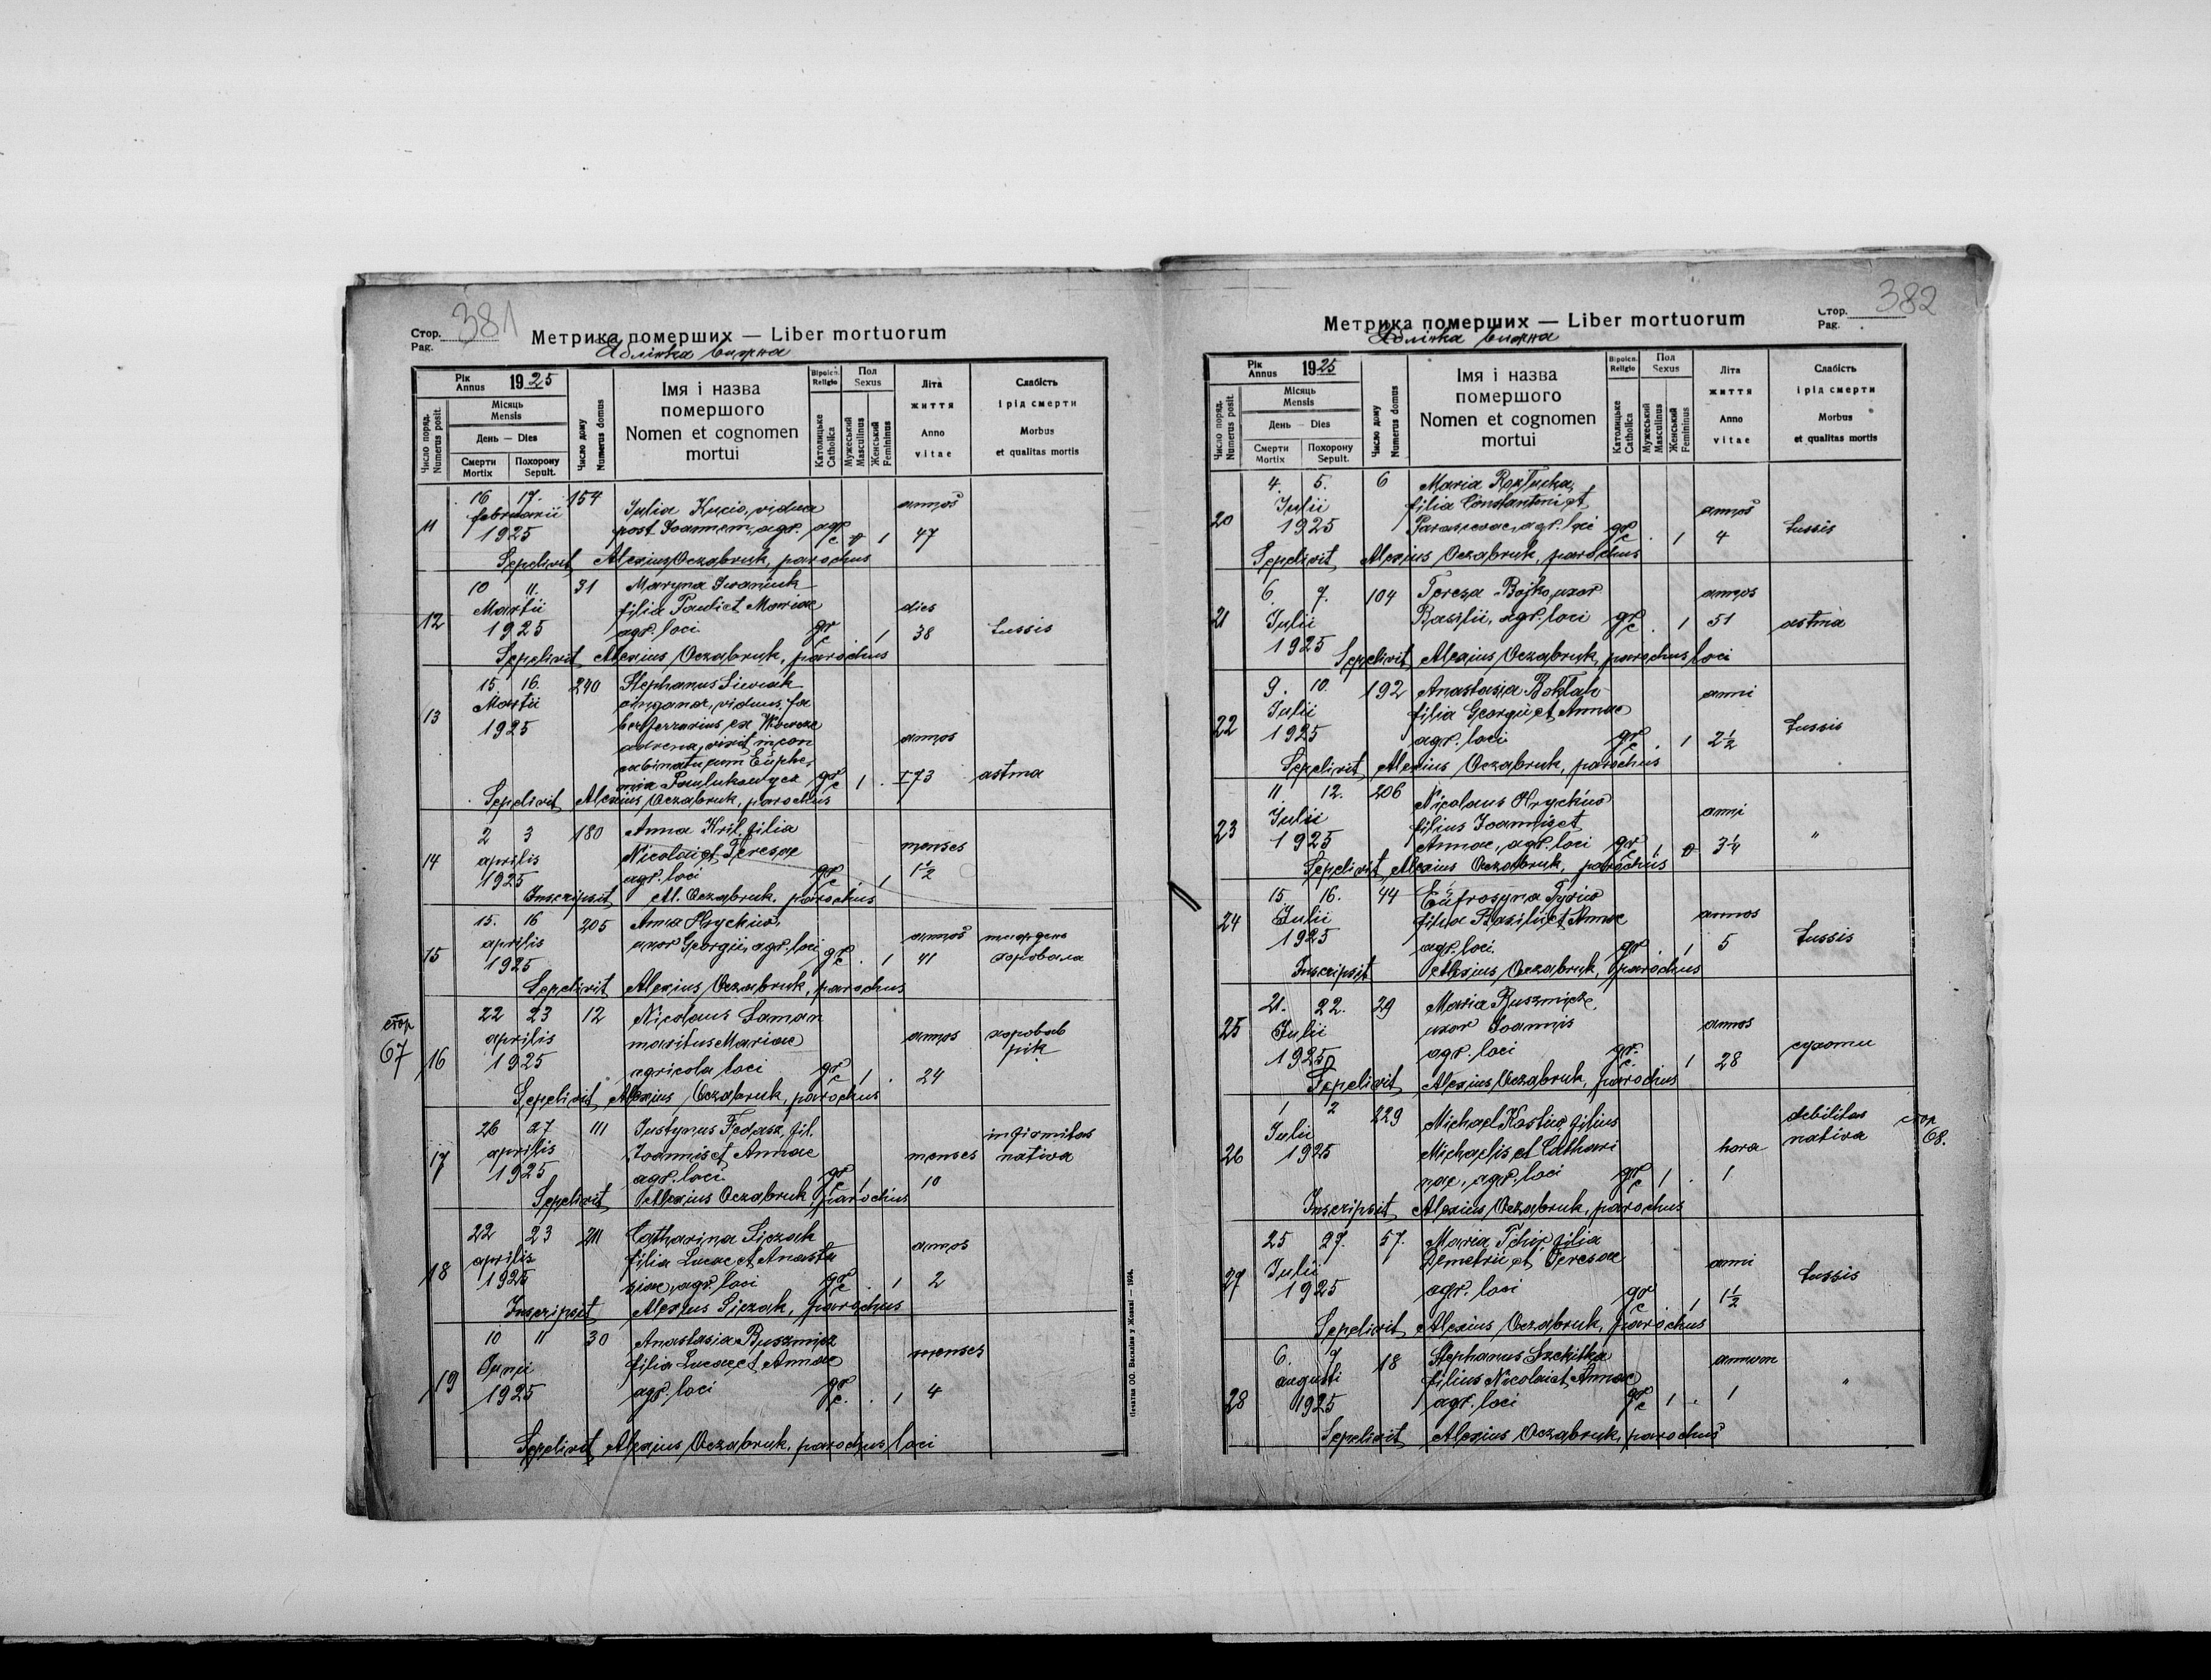 381
Стор.
Pag.
Метрика померших — Liber mortuorum
Яблінка вижна
Рік
Annus
1925
Число поряд.
Numerus posit.
Місяць
Mensis
День — Dies
Смерти
Mortix
Похорону
Sepult.
Число дому
Numerus domus
Імя і назва
помершого
Nomen et cognomen
mortui
Віроісп.
Religio
Католицьке
Catholica
Пол
Sexus
Мужеський
Masculinus
Женський
Femininus
Літа
життя
Anno
vitae
Слабість
і рід смерти
Morbus
et qualitas mortis
16 17. 154
februarii Iulia Kucio, vidua annos
11 1925 post Joannem, agr. 1 47
Sepelivit Alexius Oczabruk, parochus
10 11. 31 Maryna Iwaniuk
Martii filia Pauli et Mariae dies
12 1925 agr. loci gr c . 1 38 tussis
Sepelivit Alexius Oczabruk, parochus
15. 16. 240 Stephanus Siwak
Martii viduus, fa
13 1925 ber ferrarius, ex
advena, vixit in con annos
cubinatu cum Euphe,
mia gr c 1 . 73 astma
Sepelivit Alexius Oczabruk, parochus
2 3 180 Anna Kril, filia
14 aprilis Nicolai et Teresae menses
1925 agr. loci gr c . 1 1½
Inscripsit Al. Oczabruk, parochus
15. 16 205 Anna Hryckiw,
aprilis uxor Georgii, agr. loci annos тиждень
15 1925 gr c . 1 41 хоровала
Sepelivit Alexius Oczabruk, parochus
стор
67
22 23 12 Nicolaus Laman
aprilis maritus Mariae annos хоровав
рік
16 1925 agricola loci gr c 1 . 24
Sepelivit Alexius Oczabruk, parochus
26 27 111 Justynus Fedasz, fil. infirmitas
aprilis Joannis et Annae menses nativa
17 1925 agr. loci gr c 1 10
Sepelivit Alexius Oczabruk parochus
22 23 211 Catharina Siczak
aprilis filia Lucae et Anasta annos
18 1925 siae, agr. loci gr c . 1 2
Inscripsit Alexius Siczak, parochus
10 11 30 Anastasia Buszmicz
Junii filia Lucae et Annae menses
19 1925 agr. loci gr c . 1 4
Sepelivit Alexius Oczabruk, parochus loci
Печатня ОО. Василіян у Жовкві — 1924.
382
Стор.
Pag.
Метрика померших — Liber mortuorum
Яблінка вижна
Рік
Annus
1925
Число поряд.
Numerus posit.
Місяць
Mensis
День — Dies
Смерти
Mortix
Похорону
Sepult.
Число дому
Numerus domus
Імя і назва
помершого
Nomen et cognomen
mortui
Віроісп.
Religio
Католицьке
Catholica
Пол
Sexus
Мужеський
Masculinus
Женський
Femininus
Літа
життя
Anno
vitae
Слабість
і рід смерти
Morbus
et qualitas mortis
4. 5. 6 Maria
Julii filia Constantini et annos
20 1925 Parascevae, agr. loci gr c . 1 4 tussis
Sepelivit Alexius Oczabruk, parochus
6. 7. 104 Tereza Bojko, uxor annos
21 Julii Basilii, agr. loci gr c . 1 51 astma
1925
Sepelivit Alexius Oczabruk, parochus loci
9. 10. 192 Anastasia anni
Julii filia Georgii et Annae
22 1925 agr. loci gr c . 1 2½ tussis
Sepelivit Alexius Oczabruk, parochus
11 12. 206 Nicolaus Hryckiw
Julii filius Joannis et anni
23 1925 Annae, agr. loci gr c 1 3¼ "
Sepelivit Alexius Oczabruk, parochus
15 16. 44 Eufrosyna
24 Julii filia Basilii et Annae annos
1925 agr. loci. gr c . 1 5 tussis
Inscripsit Alexius Oczabruk, parochus
21. 22. 29 Maria Buszmicz,
25 Julii uxor Joannis annos
1925 agr. loci gr. c. 1 28 сухоти
Sepelivit Alexius Oczabruk, parochus
1 2 229 Michael Kostiw, filius debilitas
Julii Michaelis et Cathari hora nativa
стор
68.
26 1925 nae, agr. loci gr c 1 . 1
Inscripsit Alexius Oczabruk, parochus
25 27. 57. Maria filia
Julii Demetrii et Teresae anni
27 1925 agr. loci gr c . 1 1½ tussis
Sepelivit Alexius Oczabruk, parochus
6. 7 18 Stephanus annum
augusti filius Nicolai et Annae
28 1925 agr. loci gr c 1 . 1 "
Sepelivit Alexius Oczabruk, parochus